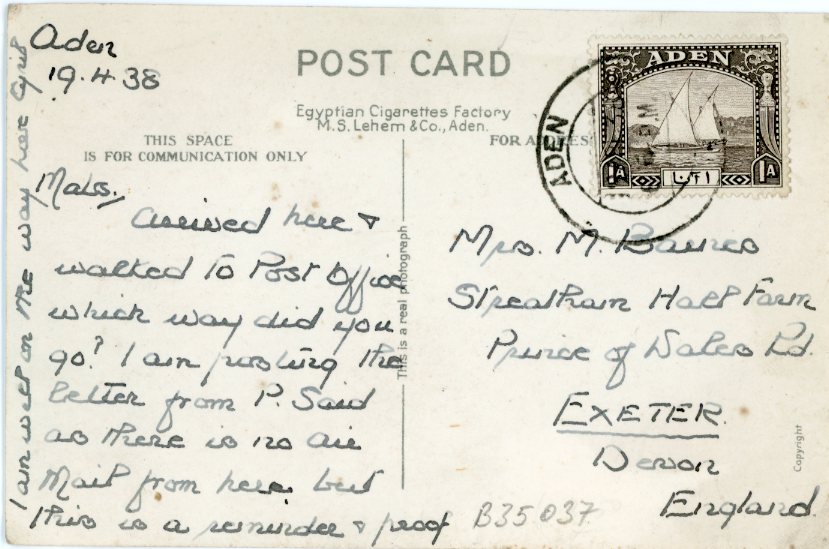 Aden
19.4.38
POST CARD
Egyptian Cigarettes Factory
M.S. Lehem & Co., Aden.
THIS SPACE
IS FOR COMMUNICATION ONLY
FOR ADDRESS
ADEN
1A
1A
ADEN
P.M
Arrived here &
walked to Post Office
which way did you
go? I am posting the
letter from P. Said
as there is no Air
Mail from here but
this is a reminder & proof
I am well on the way here
This is a real photograph
Mrs. M. Baines
Streatham Hall Farm
Prince of Wales Rd.
EXETER.
Devon
England.
Copyright
B35037